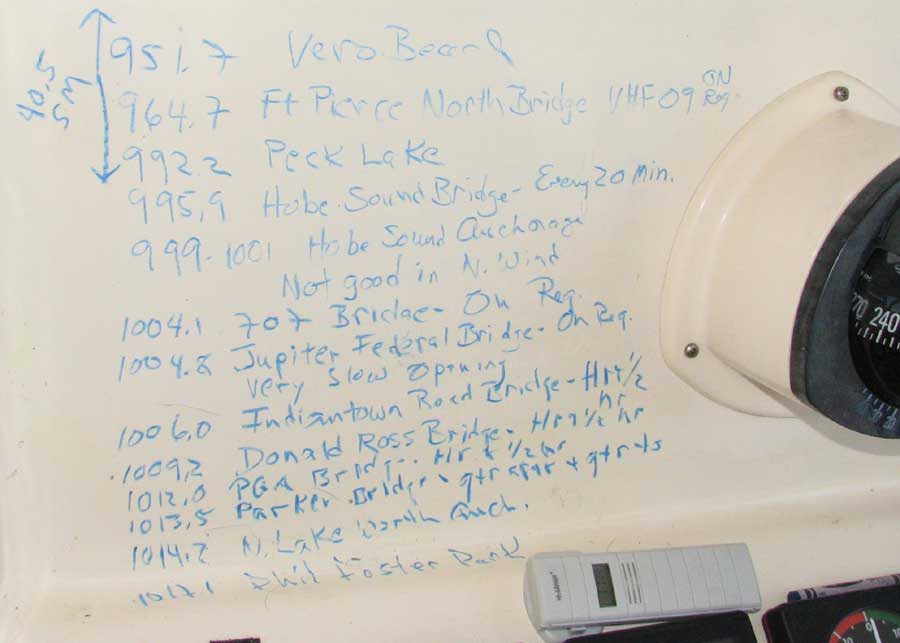 40.5 SM
951.7 Vero Beach
964.7 Ft Pierce North Bridge VHF 09 ON Req.
992.2 Peck Lake
995.9 Hobe Sound Bridge - Every 20 Min.
999-1001 Hobe Sound Anchorage
Not good in N. Wind
1004.1 707 Bridge - On Req.
1004.8 Jupiter Federal Bridge - On Req.
Very Slow Opening
1006.0 Indiantown Road Bridge - Hr + 1/2 hr
1009.2 Donald Ross Bridge - Hr + 1/2 hr
1012.0 PGA Bridge - Hr + 1/2 hr
1013.5 Parker Bridge - qtr + qtr
1014.2 N. Lake Worth Anch.
1017.1 Phil Foster Park
270 240